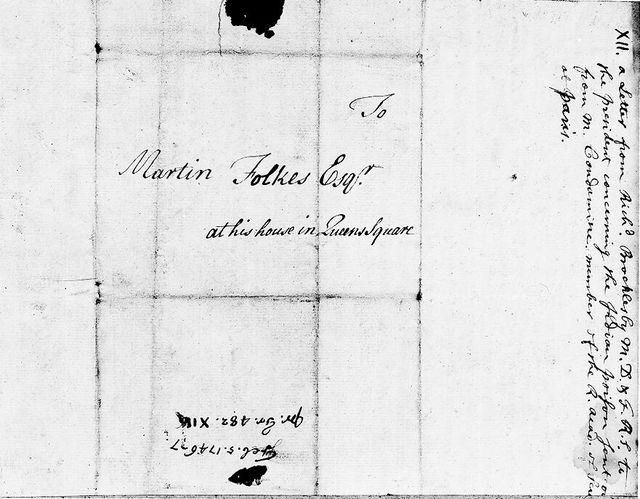 To
Martin Folkes Esqr.
at his house in Queens Square
XII. a Letter from Richd. Brocklesby M.D. & F.R.S. to
the president concerning the Indian poison sent
from M. Condamine, member of the R. acad. of
at paris.
Feb. 5. 1746/7
pr. Tr. 482. XII